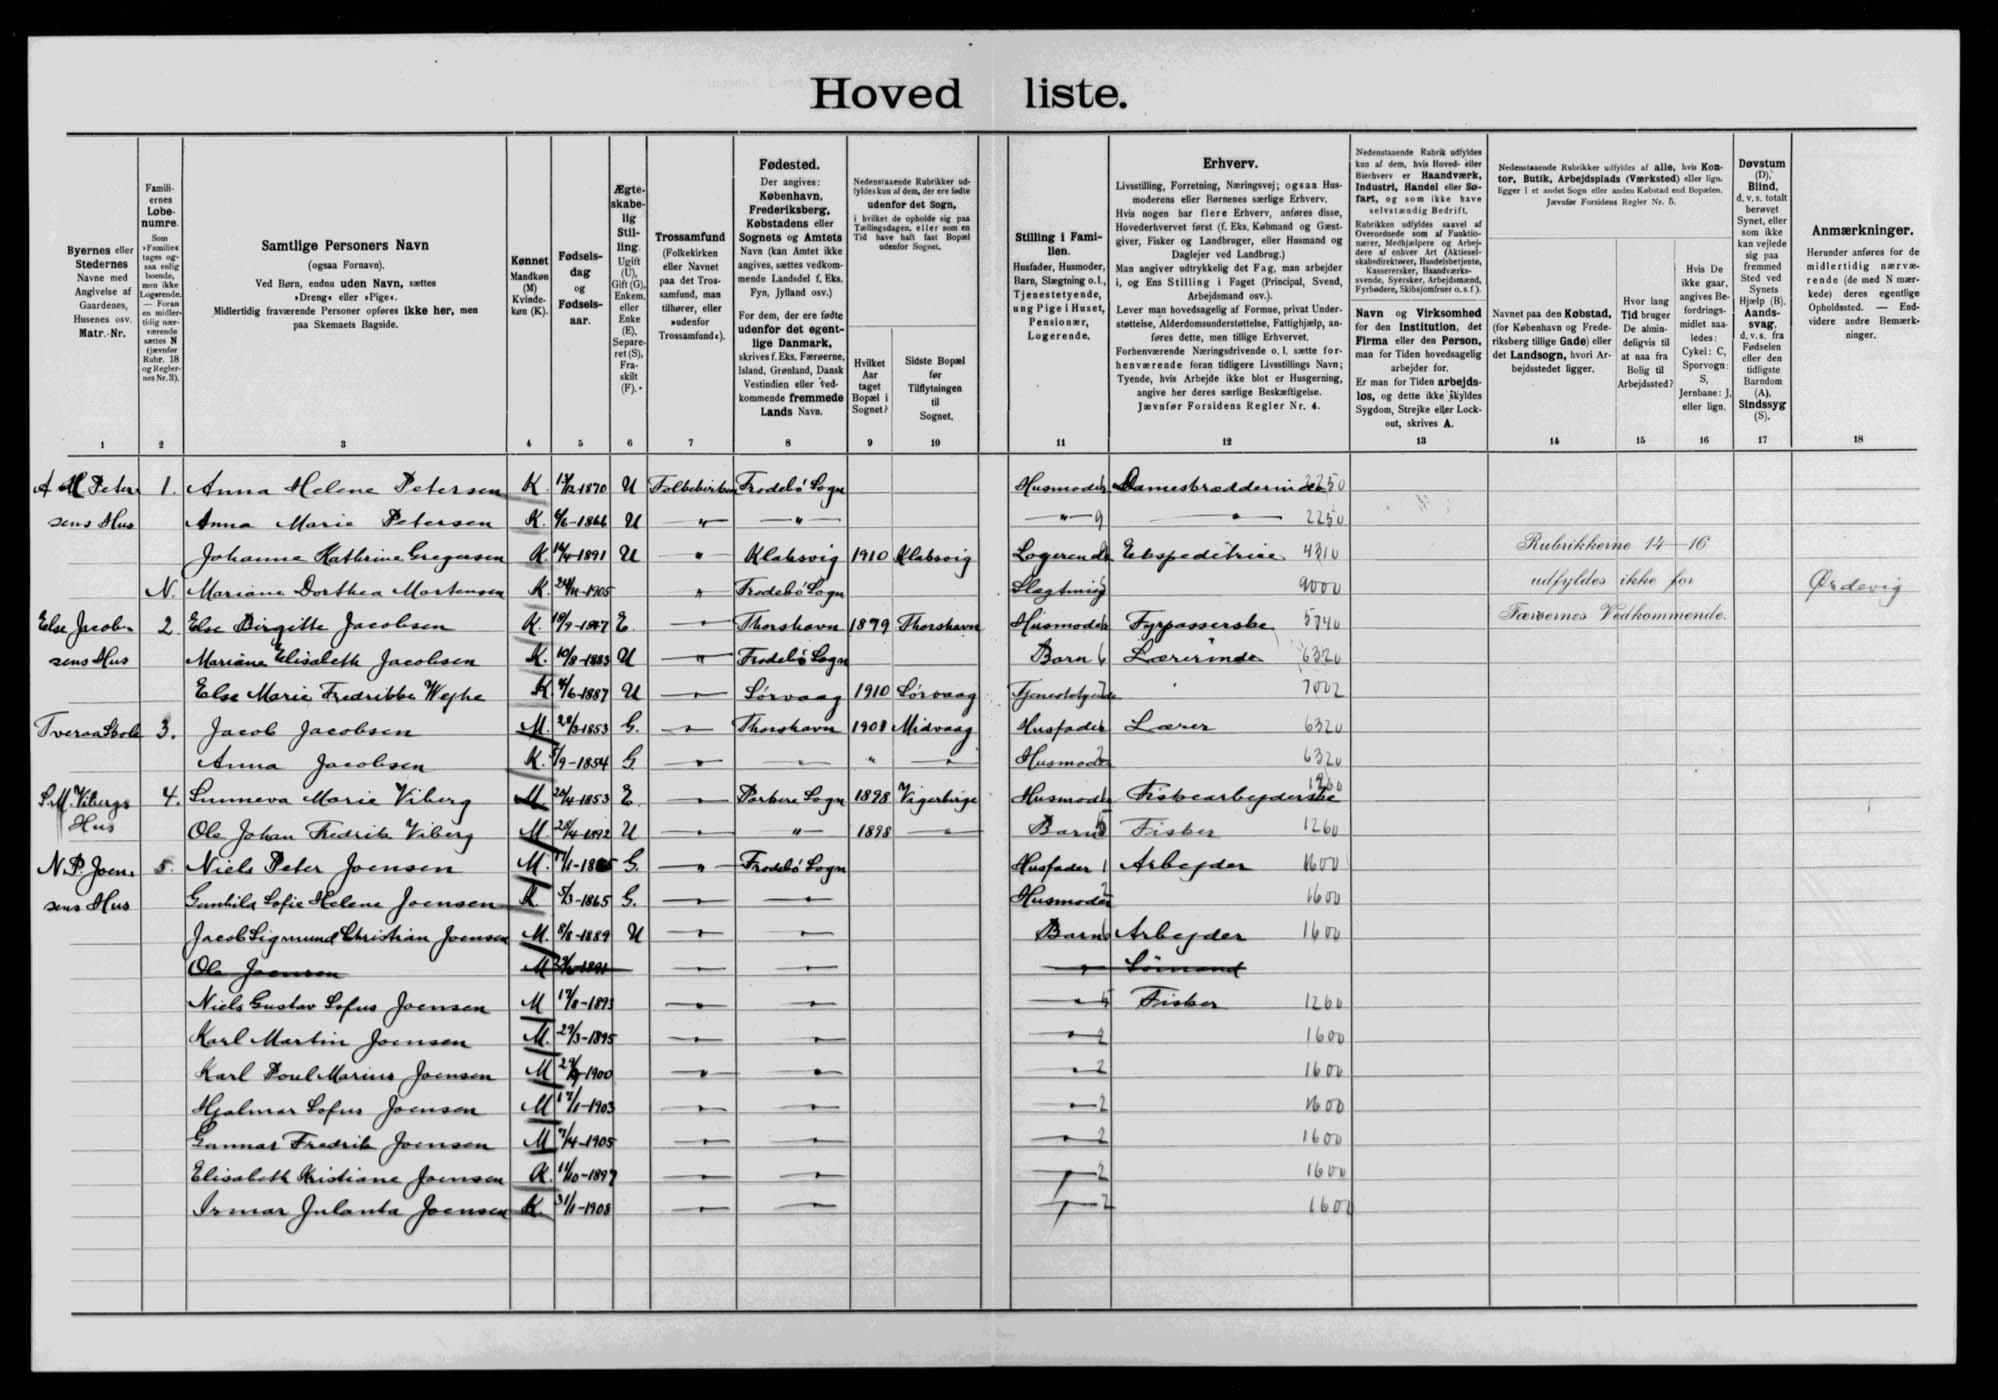 Hovedliste.
Byernes eller Stedernes Navne med Angivelse af Gaardenes, Husenes osv. Matr.-Nr.
Familiernes Løbenumre. Som »Familie« tages ogsaa enlig boende, men ikke Logerende. — Foran en midlertidig nærværende sættes N (jævnfør Rubr. 18 og Regler nes Nr. 3).
Samtlige Personers Navn (ogsaa Fornavn). Ved Børn, endnu uden Navn, sættes »Dreng« eller »Pige«. Midlertidig fraværende Personer opføres ikke her, men paa Skemaets Bagside.
Kønnet Mandkøn (M) Kvindekøn (K).
Fødselsdag og Fødselsaar.
Ægteskabelig Stilling. Ugift (U), Gift (G), Enkem. eller Enke (E), Separeret (S), Fraskilt (F).
Trossamfund (Folkekirken eller Navnet paa det Trossamfund, man tilhører, eller »udenfor Trossamfund«).
Fødested. Der angives: København, Frederiksberg, Købstadens eller Sognets og Amtets Navn (kan Amtet ikke angives, sættes vedkommende Landsdel f. Eks. Fyn, Jylland osv.) For dem, der ere fødte udenfor det egentlige Danmark, skrives f. Eks. Færøerne, Island, Grønland, Dansk Vestindien eller vedkommende fremmede Lands Navn.
Nedenstaaende Rubrikker udfyldes kun af dem, der ere fødte udenfor det Sogn, i hvilket de opholde sig paa Tællingsdagen, eller som en Tid have haft fast Bopæl udenfor Sognet.
Hvilket Aar taget Bopæl i Sognet?
Sidste Bopæl før Tilflytningen til Sognet.
Stilling i Familien. Husfader, Husmoder, Barn, Slægtning o. l., Tjenestetyende, ung Pige i Huset, Pensionær, Logerende.
Erhverv. Livsstilling, Forretning, Næringsvej; ogsaa Husmoderens eller Børnenes særlige Erhverv. Hvis nogen har flere Erhverv, anføres disse, Hovederhvervet først (f. Eks. Købmand og Gæstgiver, Fisker og Landbruger, eller Husmand og Daglejer ved Landbrug.) Man angiver udtrykkelig det Fag, man arbejder i, og Ens Stilling i Faget (Principal, Svend, Arbejdsmand osv.). Lever man hovedsagelig af Formue, privat Understøttelse, Alderdomsunderstøttelse, Fattighjælp, anføres dette, men tillige Erhvervet. Forhenværende Næringsdrivende o. l. sætte forhenværende foran tidligere Livsstillings Navn; Tyende, hvis Arbejde ikke blot er Husgerning, angive her deres særlige Beskæftigelse. Jævnfør Forsidens Regler Nr. 4.
Nedenstaaende Rubrik udfyldes kun af dem, hvis Hoved- eller Bierhverv er Haandværk, Industri, Handel eller Søfart, og som ikke have selvstændig Bedrift. Rubrikken udfyldes saavel af Overordnede som af Funktionærer, Medhjælpere og Arbejdere af enhver Art (Aktieselskabsdirektører, Handelsbetjente, Kasserersker, Haandværkssvende, Syersker, Arbejdsmænd, Fyrbødere, Skibsjomfruer o. s. f.).
Navn og Virksomhed for den Institution, det Firma eller den Person, man for Tiden hovedsagelig arbejder for. Er man for Tiden arbejdsløs, og dette ikke skyldes Sygdom, Strejke eller Lockout, skrives A.
Nedenstaaende Rubrikker udfyldes af alle, hvis Kontor, Butik, Arbejdsplads (Værksted) eller lign. ligger i et andet Sogn eller anden Købstad end Bopælen. Jævnfør Forsidens Regler Nr. 5.
Navnet paa den Købstad, (for København og Frederiksberg tillige Gade) eller det Landsogn, hvori Arbejdsstedet ligger.
Hvor lang Tid bruger De almindeligvis til at naa fra Bolig til Arbejdssted?
Hvis De ikke gaar, angives Befordringsmidlet saaledes: Cykel: C, Sporvogn: S, Jernbane: J, eller lign.
Døvstum (D), Blind, d. v. s. totalt berøvet Synet, eller som ikke kan vejlede sig paa fremmed Sted ved Synets Hjælp (B). Aandssvag, d. v. s. fra Fødselen eller den tidligste Barndom (A). Sindssyg (S).
Anmærkninger. Herunder anføres for de midlertidig nærværende (de med N mærkede) deres egentlige Opholdssted. — Endvidere andre Bemærkninger.
1 2 3 4 5 6 7 8 9 10 11 12 13 14 15 16 17 18
A M Peter- 1. Anna Helene Petersen K. 1870 U Folkekirken Frodebö Sogn Husmoder Damestrædderinde 2250
sens Hus Anna Marie Petersen K. 6/6-1866 U " " " 9 " 2250
Johanne Kathrine Gregersen K. 1891 U " Klaksvig 1910 Klaksvig Logerende Ekspeditrice 4310 Rubrikkerne 14-16
N. Mariane Dorthea Mortensen K. 1905 " Frodebö Sogn Slagtning 9000 udfyldes ikke for Ørdevig
Else Jacob- 2. Else Birgitte Jacobsen K. E. " Thorshavn 1879 Thorshavn Husmoder Fyrpasserske 5740 Færøernes Vedkommende.
sens Hus Mariane Elisabeth Jacobsen K. 10/8-1883 U " Frodebö Sogn Barn 6 Lærerinde 6320
Else Marie Fredrikke Wejhe K 6/6-1887 U " Sörvaag 1910 Sörvaag Tjenestetyende 7002
Tveraa Skole 3. Jacob Jacobsen M. 28/3-1853 G. " Thorshavn 1901 Midvaag Husfader Lærer 6320
Anna Jacobsen K. 5/9-1854 G. " " " " Husmoder 6320
S. M. Vibergs 4. Sunneva Marie Viberg M 20/4-1853 E. " Porkere Sogn 1898 Vigerbirge Husmoder Fiskearbejderske 1260
Hus Ole Johan Fredrik Viberg M. 28/4-1892 U " " 1898 " Barn Fisker 1260
N. P. Joen- 5. Niels Peter Joensen M. G. " Frodebö Sogn Husfader 1 Arbejder 1600
sens Hus Gunhild Sofie Helene Joensen K. 5/3-1865 G. " " Husmoder 2 1600
Jacob Sigmund Christian Joensen M. 8/8-1889 U " " Barn Arbejder 1600
Ole Joensen M 1891 " " " Sömand
Niels Gustav Sofus Joensen M 17/8-1893 " " " Fisker 1260
Karl Martin Joensen M. 29/3-1895 " " " 2 1600
Karl Poul Marius Joensen M 1900 " " " 2 1600
Hjalmar Sofus Joensen M 17/1-1903 " " " 2 1600
Gunnar Fredrik Joensen M 7/4-1905 " " " 2 1600
Elisabeth Kristiane Joensen K. 11/10-1897 " " " 2 1600
Irmar Julanta Joensen K 31/1-1908 " " " 2 1600